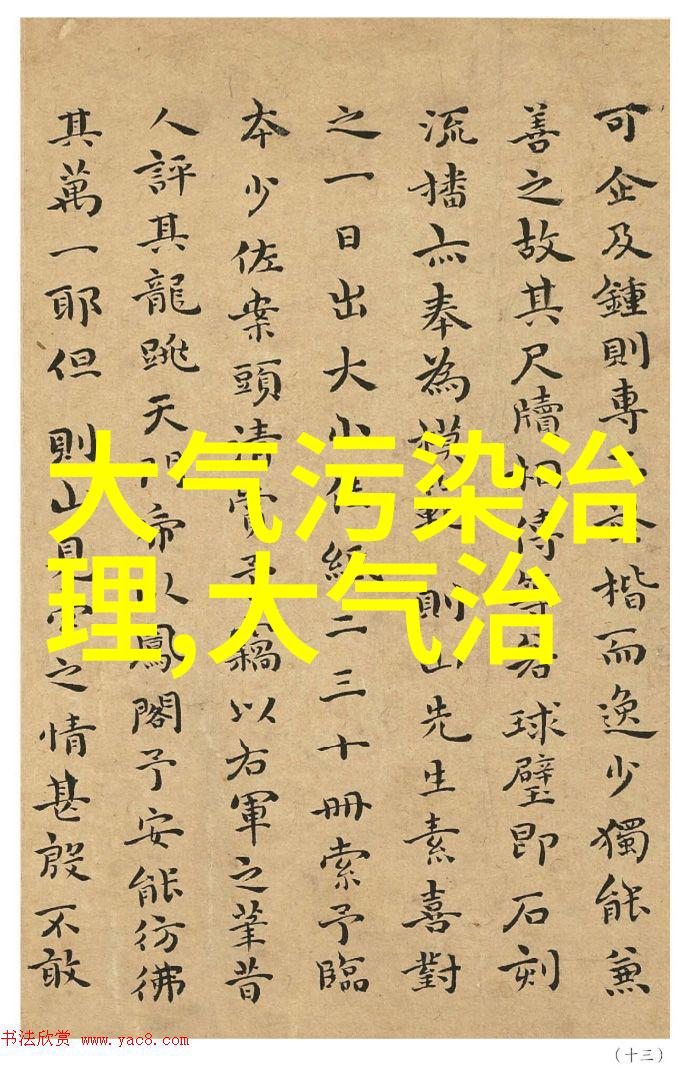 可企及鍾則專
楷而逸少獨能兼
善之故其尺牘
球璧即石刻
流播亦奉為模
則山先生素喜對
之一日出大小佐紙二三十冊索予臨
本少佐案頭清賞予
以右軍之筆昔
人評其龍跳天門
鳳閣予安能彷彿
其萬一耶但則山見
之情甚殷不敢
大气污染治
理,大气治
书法欣赏 www.yac8.com
(十三)